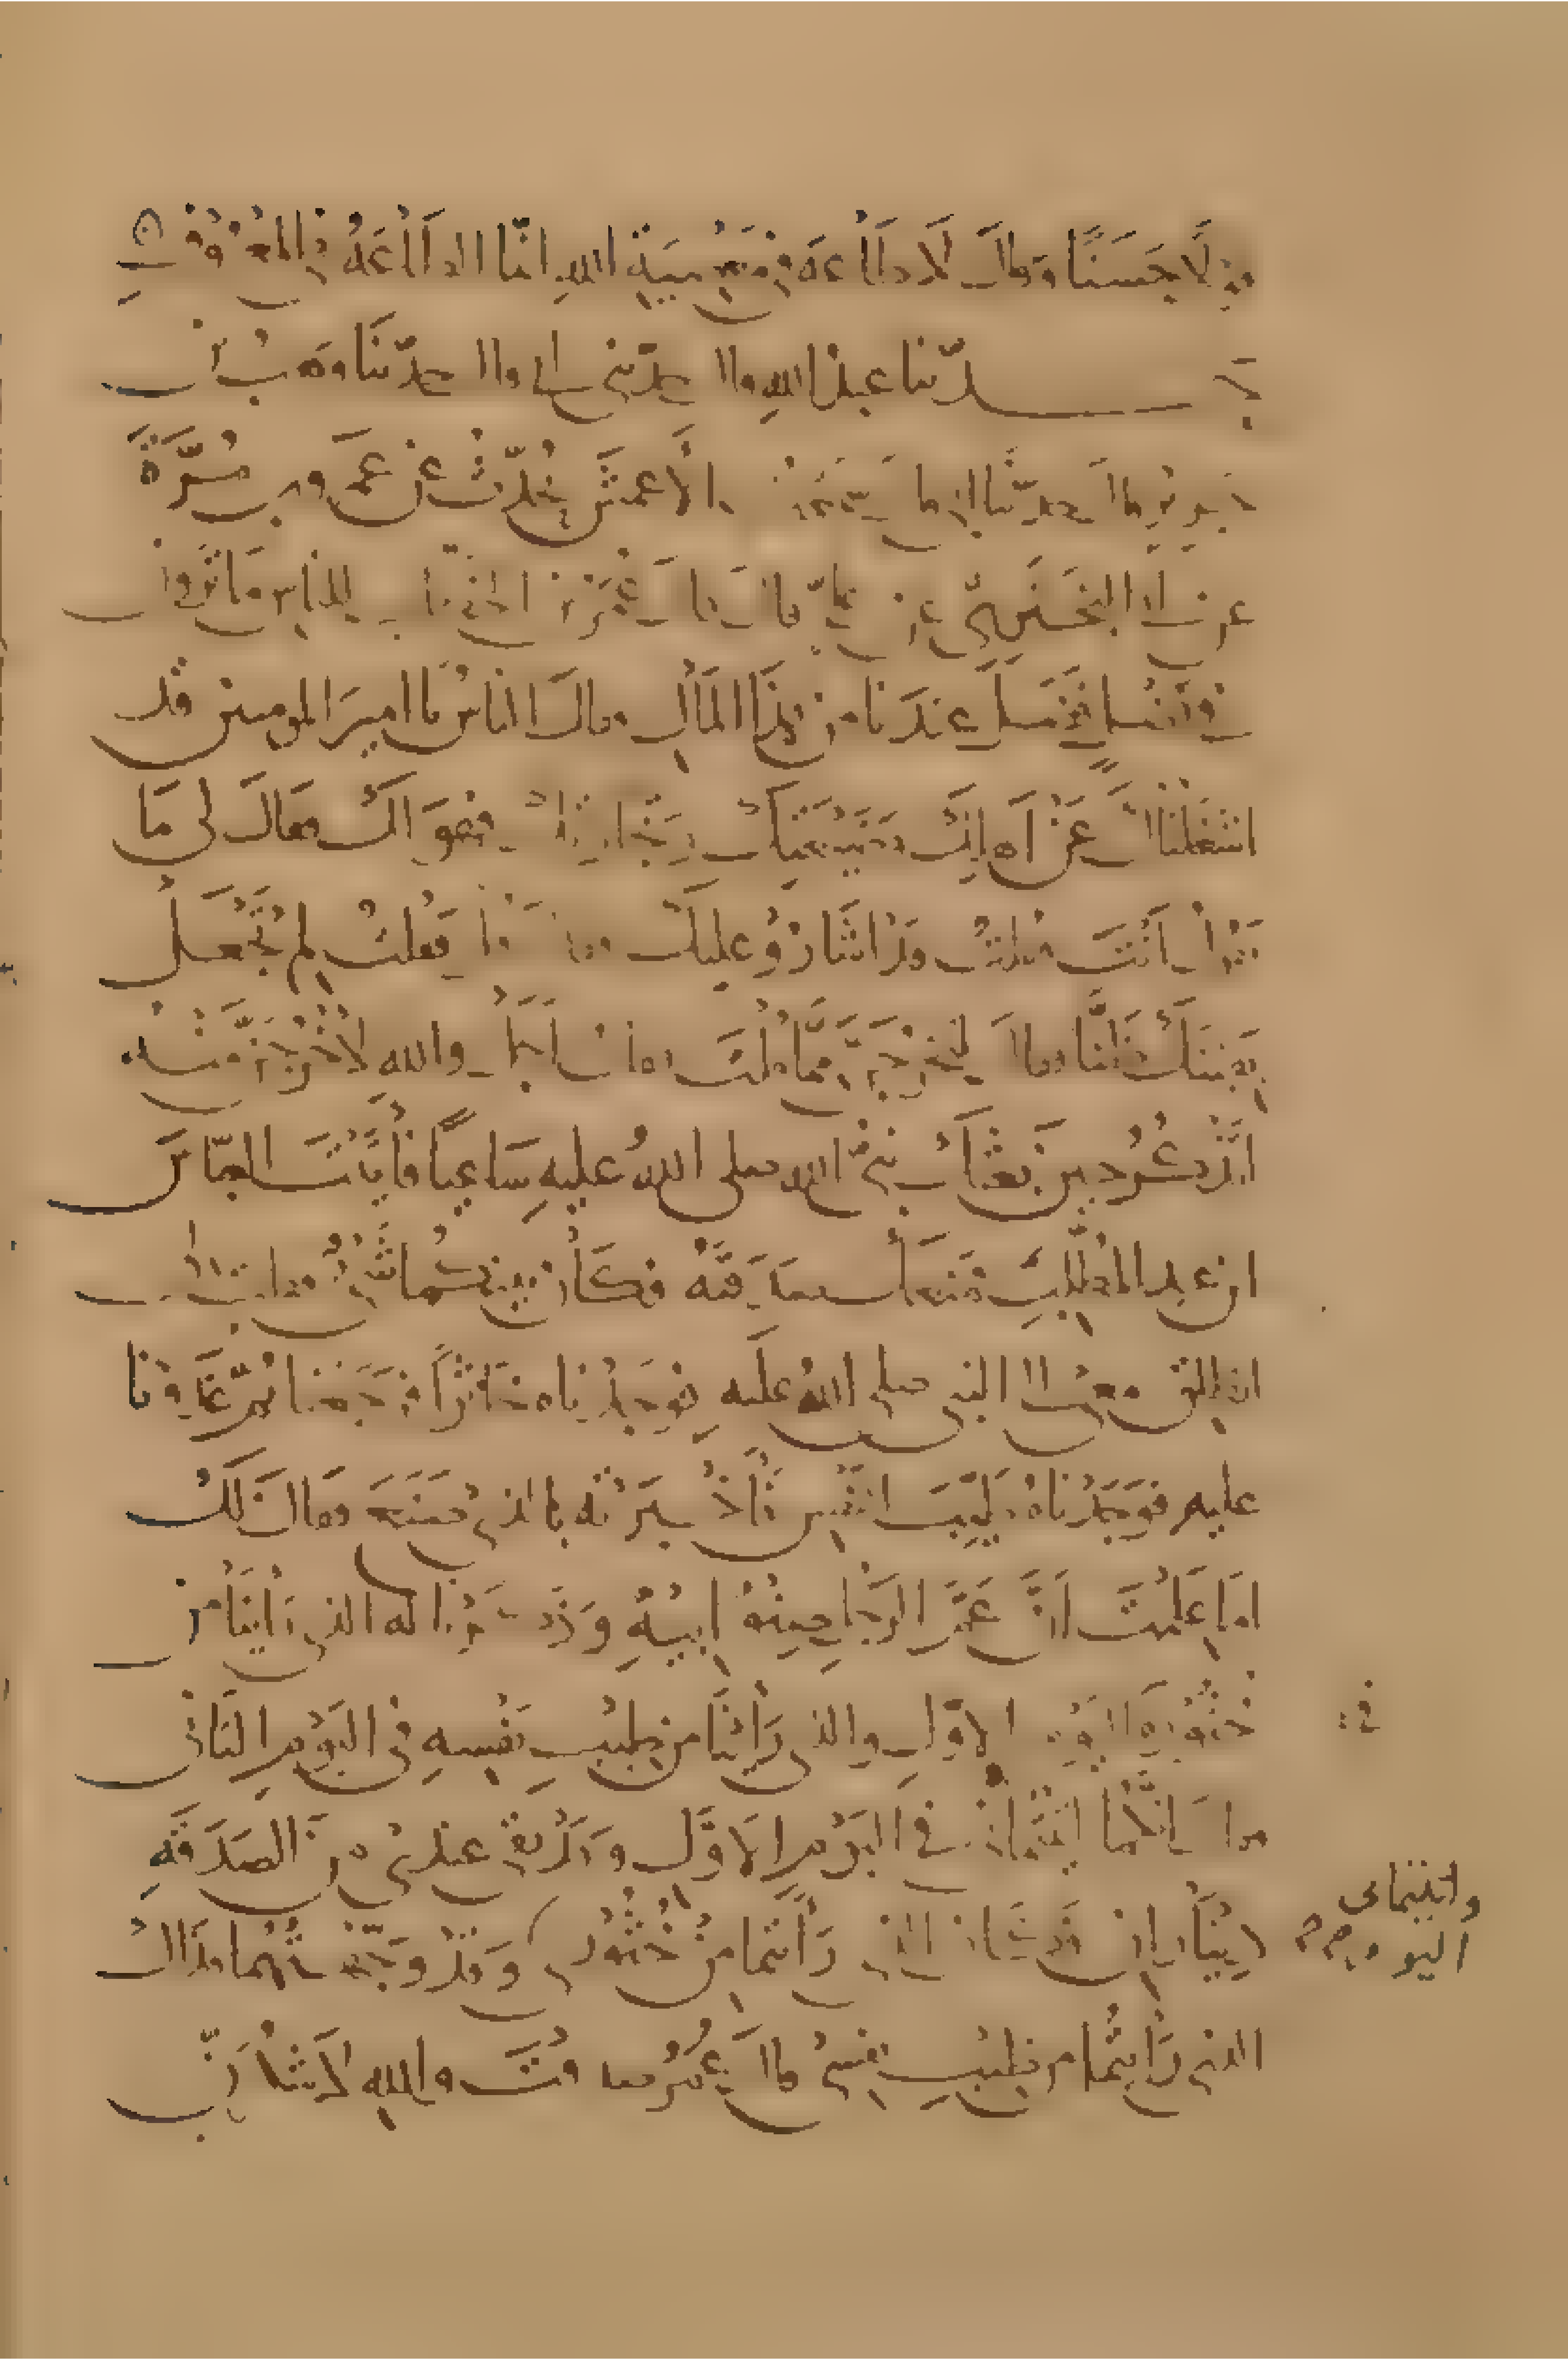 قولا حَسَنًا وَقالَ لَا طَاعَة في مَعْصِيَةِ اللهِ انّما الطَاعَةُ في المعْرُوفِ
حدّثنا عبدُ اللهِ قال حدّثني ابي قال حدّثنا وَهبُ بن
جرير قالَ حدّثنا ابي قال سَمعتُ الأعمشَ يُحدّثُ عَن عَمرو بن مُرَّةَ
عن ابي البَخْتَرِيّ عن عليّ قال قالَ عُمَرُ بن الخطّاب للناسِ مَا تَرونَ
في فَضْلٍ فَضَلَ عندَنا من هذَا المَالِ فقالَ الناسُ يا اميرَ المومنين قد
اشَغلْناكَ عَنْ اَهلِكَ وَضَيْعَتِكَ وَتِجَارَتِكَ فهوَ لكَ فقالَ لي مَا
تقُولُ اَنتَ فقلتُ قدْ اشَارُوُ عليكَ فقالَ قُلْ فقُلتُ لِمَ تَجْعَلُ
يَقِينَكَ ظَنًّا فقالَ لتَخْرُجَنَّ مِمَّا قُلتَ فقلتُ اَجَلْ واللهِ لَأَخْرُجَنَّ مِنْه
اَتَذْكُرُ حينَ بَعثَكَ نبيُّ اللهِ صلى اللهُ عليهِ سَاعِيًا فأَتَيْتَ العبّاسَ
ابن عبد المُطَّلِبِ فَمَنَعَكَ صَدَقَتَهُ فكَانَ بينكُما شَيْءٌ فقلتَ لي
انطلق معي الى النبي صلى اللهُ عليه فوَجَدْناه خاثِرًا فرَجَعْنا ثمّ غَدَوْنا
عليه فوَجَدْناهُ طَيِّبَ النَفْسِ فأَخْبَرْتَه بالذي صَنَعَ فقالَ لَكَ
امَا عَلِمْتَ اَنَّ عَمَّ الرَجُلِ صِنْوُ ابيهِ وَذَكَرْنا له الذي رَأينَا من
خُثُورِهِ اليَوْمِ الاوّلِ والذي رَأيْنَا من طِيبِ نَفْسِهِ في اليَوْمِ الثَاني
في
فقالَ انّكما اَتَيْتُماني في اليَوْمِ الاوَّلِ وَقَدْ بَقي عندي مِنَ الصَدَقَةِ
دِينَارانِ فَكَانَ الذي رَأَيتما مِنْ خُثُوري وَقدْ وَجَّهْتُهُما فذاكَ
واتيتماني
اليوم
الذي رَأَيتُما من طِيبِ نفسي قالَ عُمَرُ صدقتَ واللهِ لَأَشْكُرَنَّ